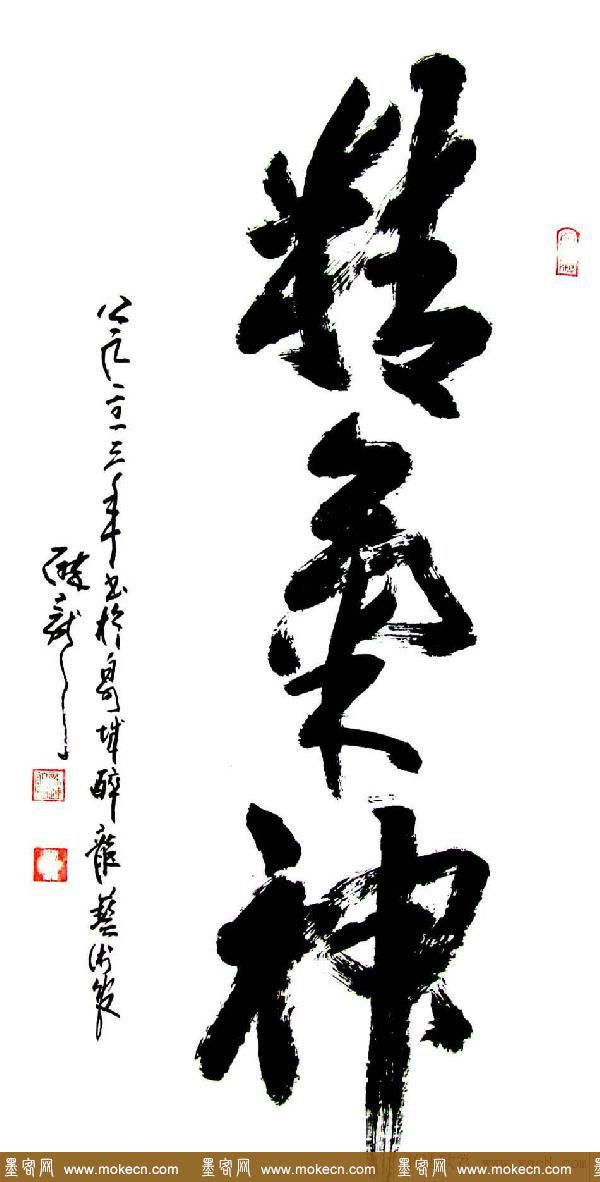 精氣神
公元二〇一三年书於城醉龍藝術
墨客网 www.mokecn.com 墨客网 www.mokecn.com 墨客网 www.mokecn.com